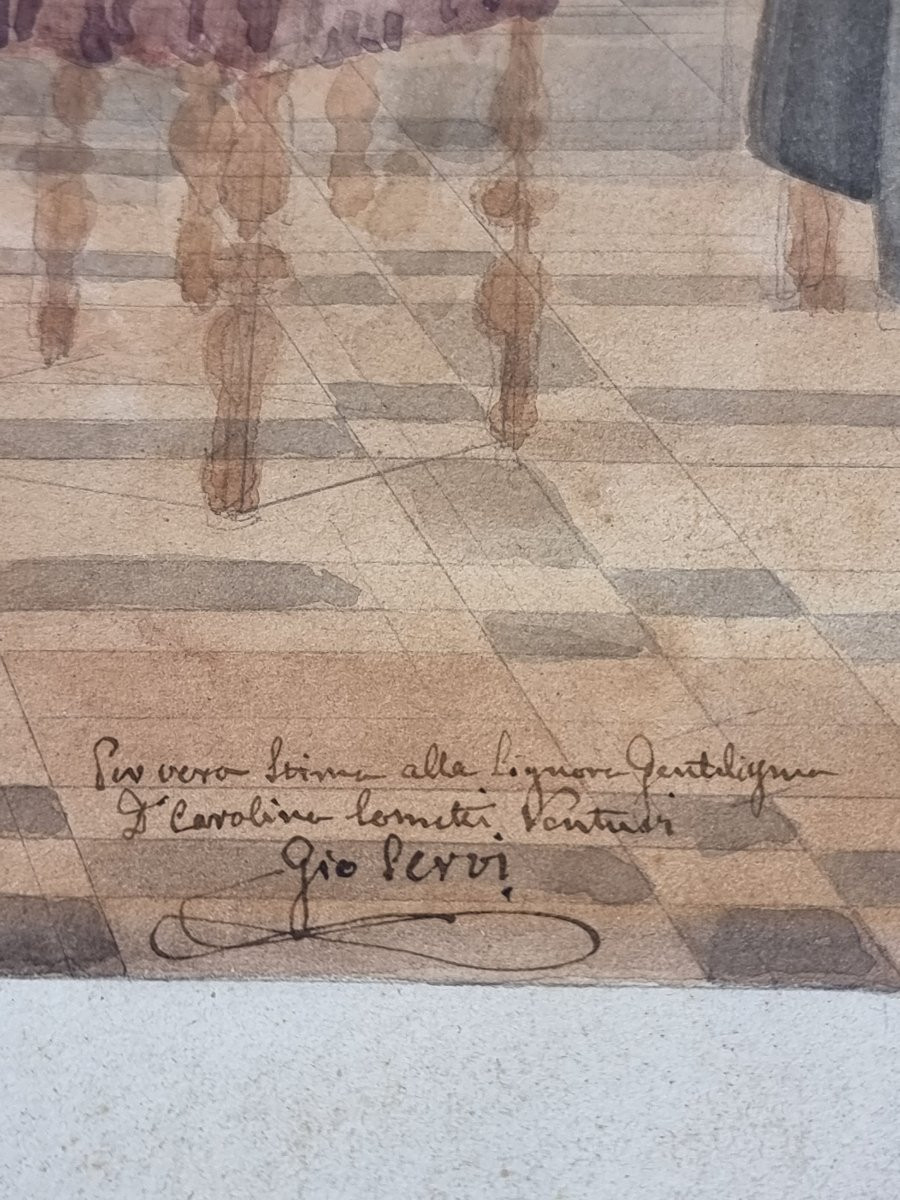 Per vera stima alla Signora Gentiligma
D.ª Carolina Cometti Venturi
Gio Servi